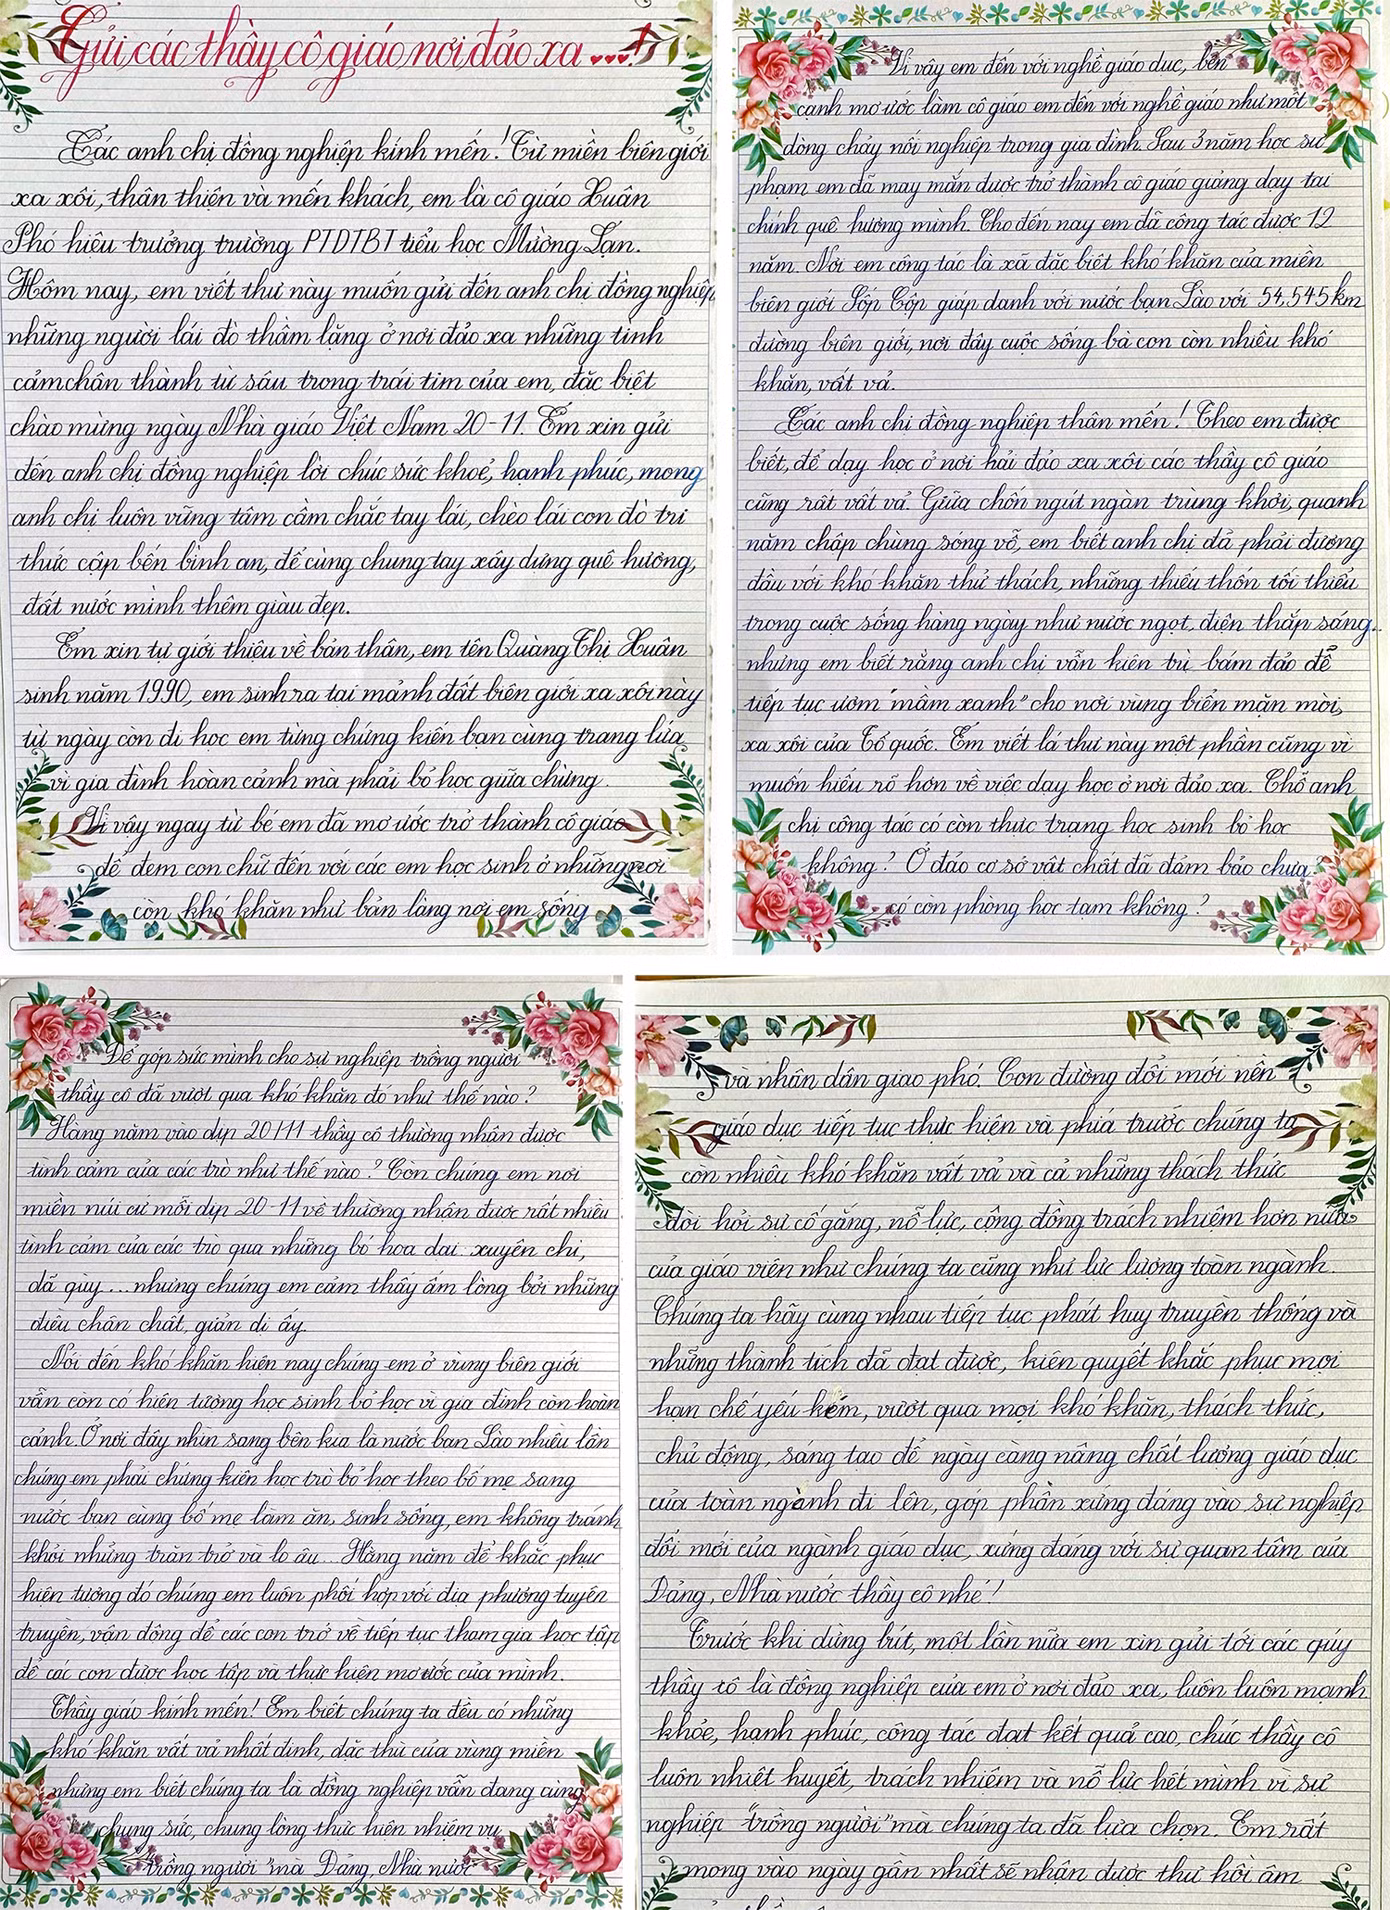 Gửi các thầy cô giáo nơi đảo xa
Các anh chị đồng nghiệp kính mến! Từ miền biên giới
xa xôi, thân thiện và mến khách, em là cô giáo Xuân
Phó hiệu trưởng trường PTDTBT tiểu học Mường Lạn.
Hôm nay, em viết thư này muốn gửi đến anh chị đồng nghiệp
những người lái đò thầm lặng ở nơi đảo xa những tình
cảm chân thành từ sâu trong trái tim của em, đặc biệt
chào mừng ngày Nhà giáo Việt Nam 20-11. Em xin gửi
đến anh chị đồng nghiệp lời chúc sức khoẻ, hạnh phúc, mong
anh chị luôn vững tâm cầm chắc tay lái, chèo lái con đò tri
thức cập bến bình an, để cùng chung tay xây dựng quê hương,
đất nước mình thêm giàu đẹp.
Em xin tự giới thiệu về bản thân, em tên Quàng Thị Xuân
sinh năm 1990, em sinh ra tại mảnh đất biên giới xa xôi này
từ ngày còn đi học em từng chứng kiến bạn cùng trang lứa
vì gia đình hoàn cảnh mà phải bỏ học giữa chừng.
Vì vậy ngay từ bé em đã mơ ước trở thành cô giáo
để đem con chữ đến với các em học sinh ở những nơi
còn khó khăn như bản làng nơi em sống
Vì vậy em đến với nghề giáo dục, bên
cạnh mơ ước làm cô giáo em đến với nghề giáo như một
dòng chảy nối nghiệp trong gia đình. Sau 3 năm học sư
phạm em đã may mắn được trở thành cô giáo giảng dạy tại
chính quê hương mình. Cho đến nay em đã công tác được 12
năm. Nơi em công tác là xã đặc biệt khó khăn của miền
biên giới Sốp Cộp giáp danh với nước bạn Lào với 54,545km
đường biên giới, nơi đây cuộc sống bà con còn nhiều khó
khăn, vất vả.
Các anh chị đồng nghiệp thân mến! Theo em được
biết, để dạy học ở nơi hải đảo xa xôi các thầy cô giáo
cũng rất vất vả. Giữa chốn ngút ngàn trùng khơi, quanh
năm chập chùng sóng vỗ, em biết anh chị đã phải đương
đầu với khó khăn thử thách, những thiếu thốn tối thiểu
trong cuộc sống hàng ngày như nước ngọt, điện thắp sáng...
nhưng em biết rằng anh chị vẫn kiên trì bám đảo để
tiếp tục ươm "mầm xanh" cho nơi vùng biển mặn mòi,
xa xôi của Tổ quốc. Em viết lá thư này một phần cũng vì
muốn hiểu rõ hơn về việc dạy học ở nơi đảo xa. Chỗ anh
chị công tác có còn thực trạng học sinh bỏ học
không? Ở đảo cơ sở vật chất đã đảm bảo chưa?
có còn phòng học tạm không?
Để góp sức mình cho sự nghiệp trồng người
thầy cô đã vượt qua khó khăn đó như thế nào?
Hàng năm vào dịp 20/11 thầy cô thường nhận được
tình cảm của các trò như thế nào? Còn chúng em nơi
miền núi cứ mỗi dịp 20-11 về thường nhận được rất nhiều
tình cảm của các trò qua những bó hoa dại xuyến chi,
dã quỳ... nhưng chúng em cảm thấy ấm lòng bởi những
điều chân chất, giản dị ấy.
Nói đến khó khăn hiện nay chúng em ở vùng biên giới
vẫn còn có hiện tượng học sinh bỏ học vì gia đình còn hoàn
cảnh. Ở nơi đây nhìn sang bên kia là nước bạn Lào nhiều lần
chúng em phải chứng kiến học trò bỏ học theo bố mẹ sang
nước bạn cùng bố mẹ làm ăn, sinh sống, em không tránh
khỏi những trăn trở và lo âu... Hằng năm để khắc phục
hiện tượng đó chúng em luôn phối hợp với địa phương tuyên
truyền, vận động để các con trở về tiếp tục tham gia học tập
để các con được học tập và thực hiện mơ ước của mình.
Thầy giáo kính mến! Em biết chúng ta đều có những
khó khăn vất vả nhất định, đặc thù của vùng miền
nhưng em biết chúng ta là đồng nghiệp vẫn đang cùng
chung sức, chung lòng thực hiện nhiệm vụ
"trồng người" mà Đảng, Nhà nước
và nhân dân giao phó. Con đường đổi mới nền
giáo dục tiếp tục thực hiện và phía trước chúng ta
còn nhiều khó khăn vất vả và cả những thách thức
đòi hỏi sự cố gắng, nỗ lực, công đồng trách nhiệm hơn nữa
của giáo viên như chúng ta cũng như lực lượng toàn ngành.
Chúng ta hãy cùng nhau tiếp tục phát huy truyền thống và
những thành tích đã đạt được, kiên quyết khắc phục mọi
hạn chế yếu kém, vượt qua mọi khó khăn, thách thức,
chủ động, sáng tạo để ngày càng nâng chất lượng giáo dục
của toàn ngành đi lên, góp phần xứng đáng vào sự nghiệp
đổi mới của ngành giáo dục, xứng đáng với sự quan tâm của
Đảng, Nhà nước thầy cô nhé!
Trước khi dừng bút, một lần nữa em xin gửi tới các quý
thầy cô là đồng nghiệp của em ở nơi đảo xa, luôn luôn mạnh
khỏe, hạnh phúc, công tác đạt kết quả cao, chúc thầy cô
luôn nhiệt huyết, trách nhiệm và nỗ lực hết mình vì sự
nghiệp "trồng người" mà chúng ta đã lựa chọn. Em rất
mong vào ngày gần nhất sẽ nhận được thư hồi âm